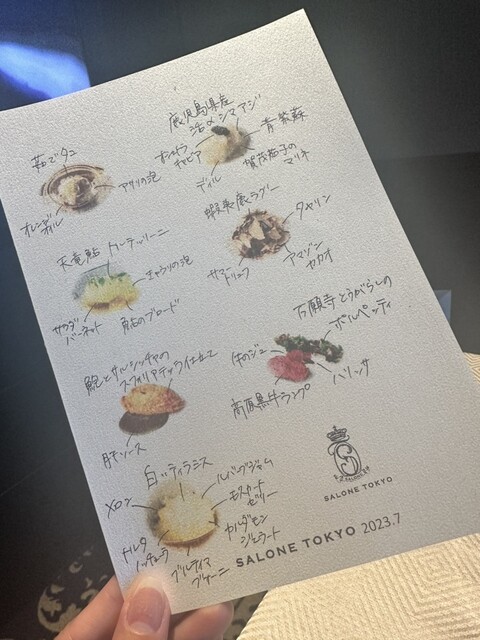 茹でダコ
アサリの泡
オレンジオイル
鹿児島県産
活〆シマアジ
オシェトラ
キャビア
青紫蘇
賀茂茄子の
マリネ
ディル
天竜鮎
トルテッリーニ
きゅうりの泡
サラダ
バーネット
鮎のブロード
蝦夷鹿ラグー
タヤリン
サマートリュフ
アマゾン
カカオ
鮑とサルシッチャの
スフォリアテッラ仕立て
肝ソース
万願寺とうがらしの
ポルペッティ
牛のジュ
ハリッサ
高原黒牛ランプ
白いティラミス
メロン
ルバーブジャム
モスカート
ゼリー
カルダモン
ジェラート
トルタ
ノッチョーラ
S
SALONE
SALONE TOKYO
SALONE TOKYO 2023.7